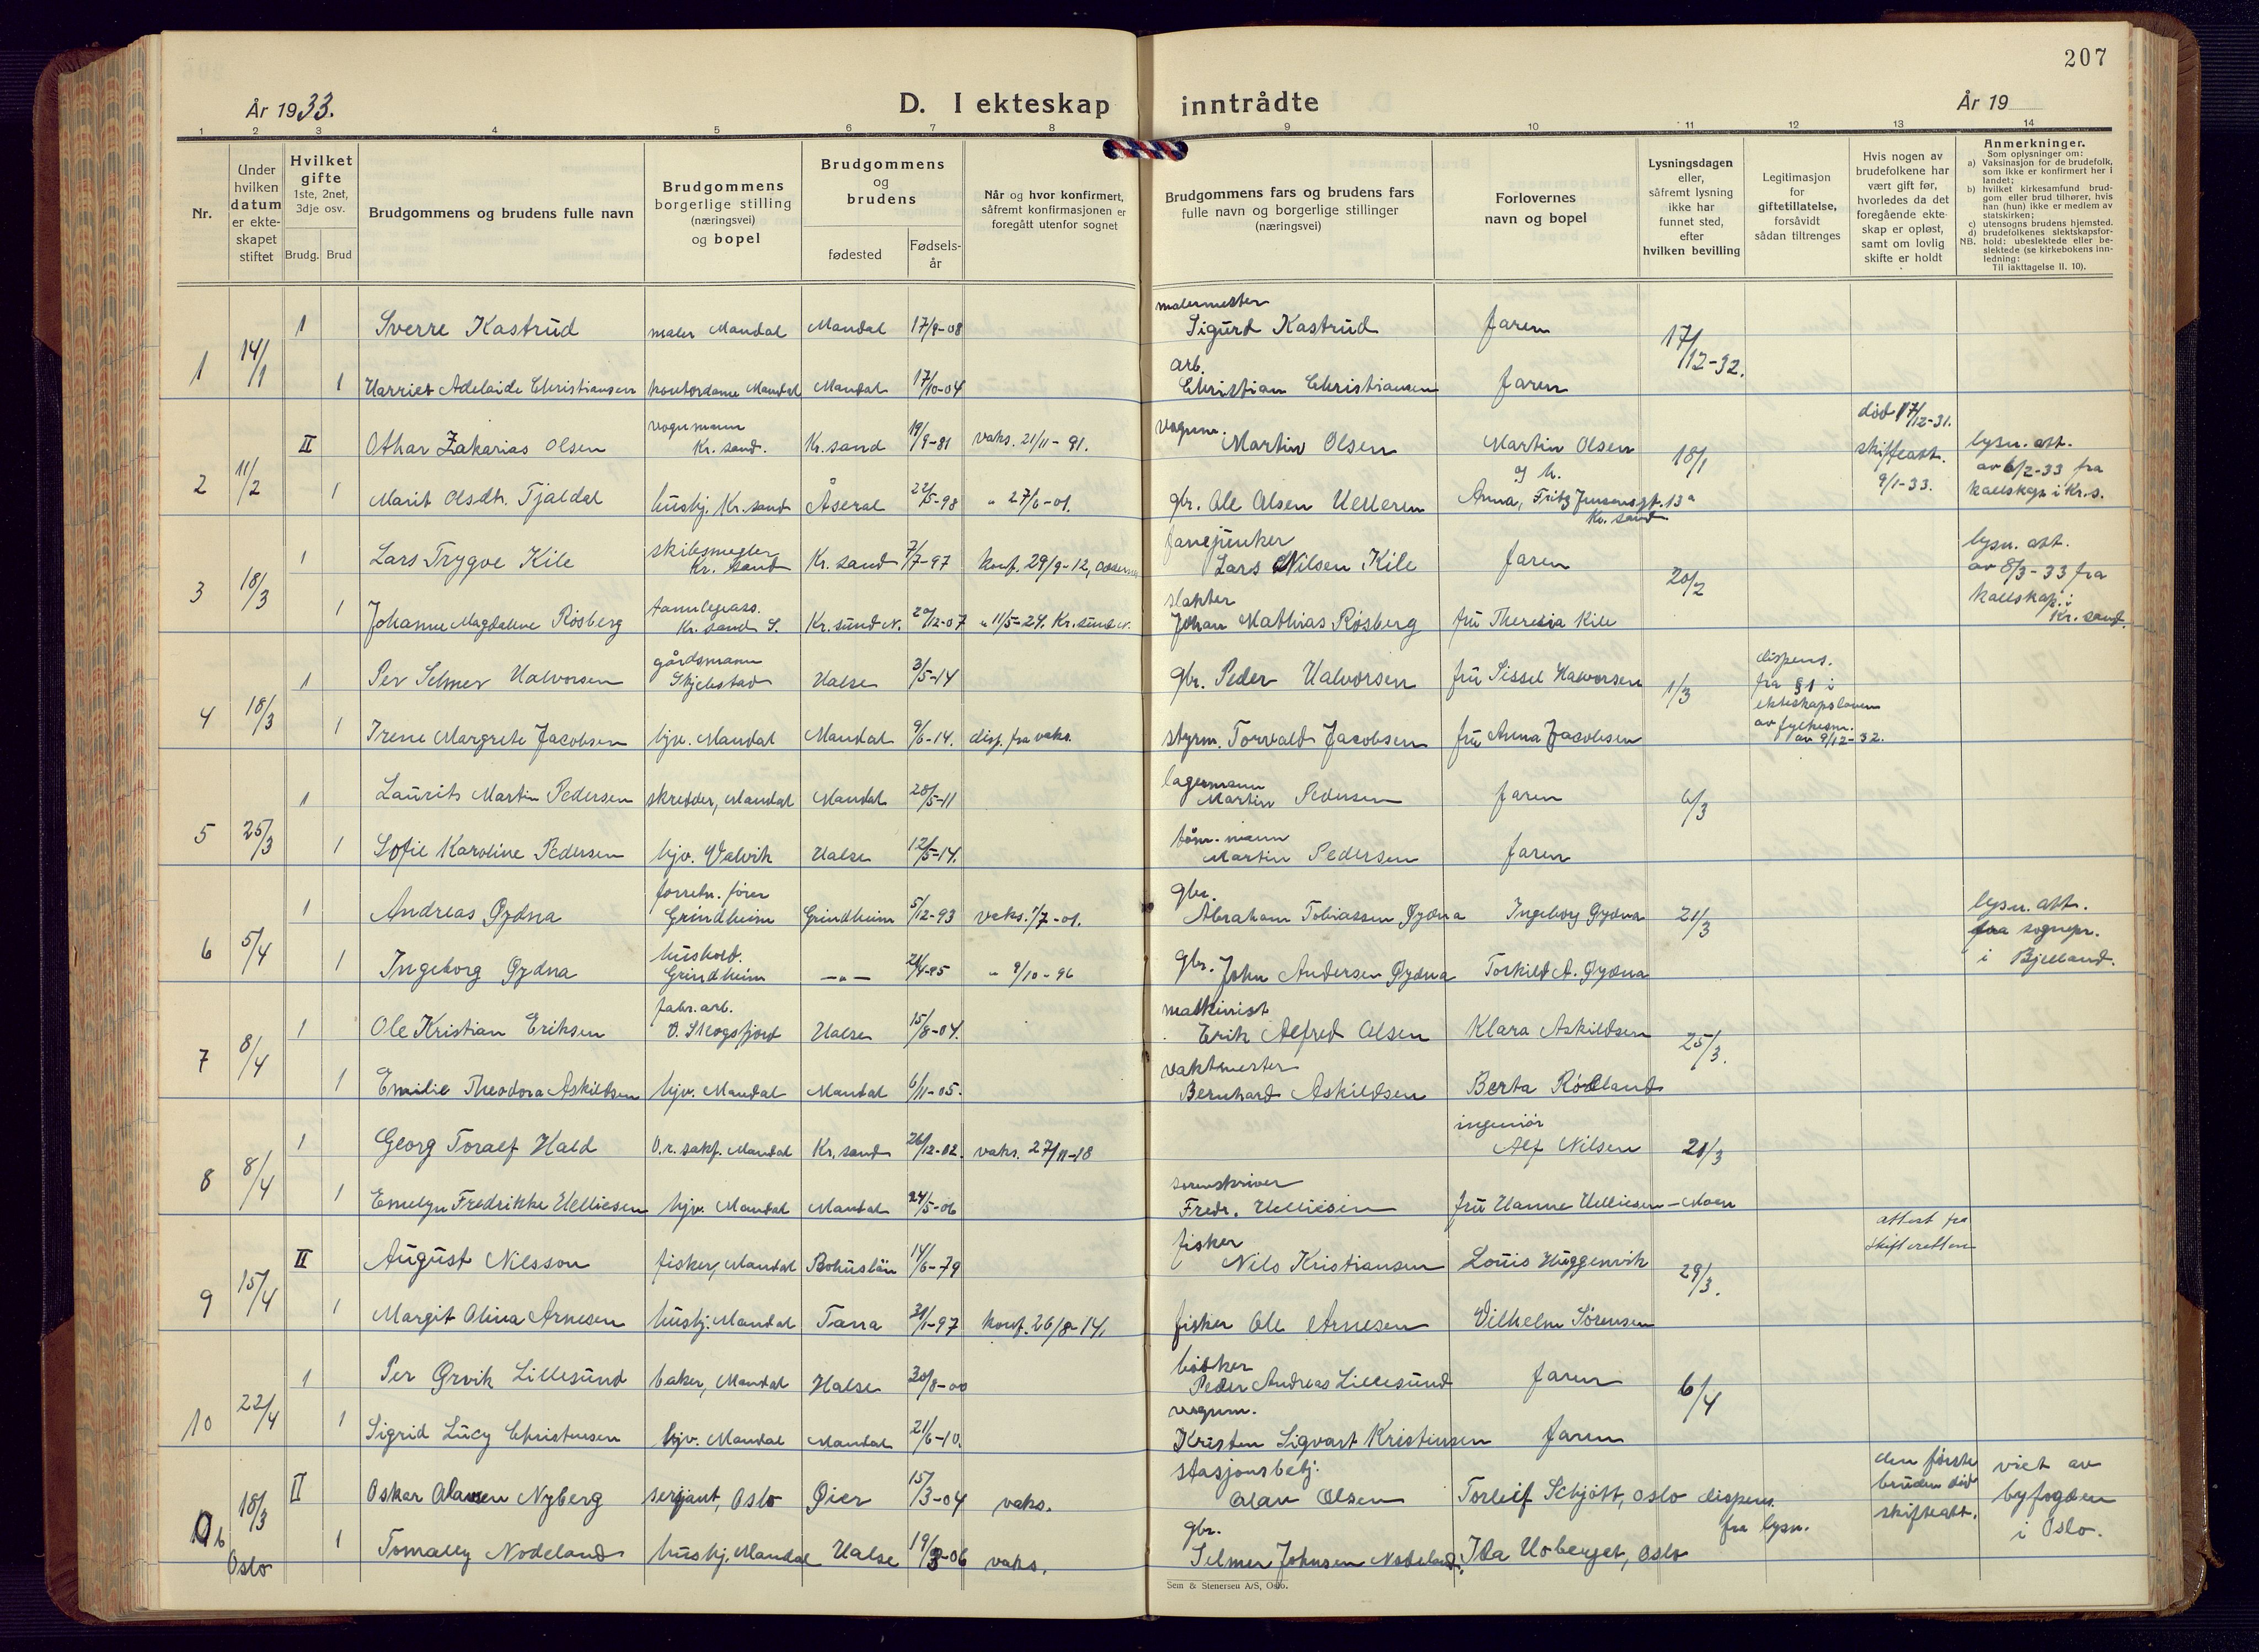 207
År 1933.
D. I ekteskap inntrådte
År 19
1 2 3 4 5 6 7 8 9 10 11 12 13 14
Nr.
Under hvilken datum er ekte- skapet stiftet
Hvilket gifte 1ste, 2net, 3dje osv.
Brudg. Brud
Brudgommens og brudens fulle navn
Brudgommens borgerlige stilling (næringsvei) og bopel
Brudgommens og brudens
fødested
Fødsels- år
Når og hvor konfirmert, såfremt konfirmasjonen er foregått utenfor sognet
Brudgommens fars og brudens fars fulle navn og borgerlige stillinger (næringsvei)
Forlovernes navn og bopel
Lysningsdagen eller, såfremt lysning ikke har funnet sted, efter hvilken bevilling
Legitimasjon for giftetillatelse, forsåvidt sådan tiltrenges
Hvis nogen av brudefolkene har vært gift før, hvorledes da det foregående ekte- skap er opløst, samt om lovlig skifte er holdt
Anmerkninger.
Som oplysninger om:
a) Vaksinasjon for de brudefolk, som ikke er konfirmert her i landet;
b) hvilket kirkesamfund brud- gom eller brud tilhører, hvis han (hun) ikke er medlem av statskirken;
c) utensogns brudens hjemsted.
d) brudefolkenes slektskapsfor- hold: ubeslektede eller be- slektede (se kirkebokens inn- ledning:
NB.
Til iakttagelse II. 10).
1 14/1 1 Sverre Kastrud maler Mandal Mandal 17/9-08 malermester Sigurd Kastrud faren 17/12-32.
1 Harriet Adelaide Christiansen kontordame Mandal Mandal 17/10-04 arb. Christian Christiansen faren
2 11/2 II Othar Zakarias Olsen vognmann Kr. sand. Kr. sand 19/9-81 vaks. 21/11-91. vognm. Martin Olsen Martin Olsen og h. 18/1 død 17/12-31. skifteatt. 9/1-33. lysn. att. av 6/2-33 fra kallskap. i Kr.s.
1 Marit Olsdtr. Tjaldal hushj. Kr. sand Åseral 22/5-98 " 27/6-01. gbr. Ole Olsen Anna, Fritz Jensensgt. 13a Kr. sand
3 18/3 1 Lars Trygve Kile skibsmegler Kr. sand Kr. sand 7/7-97 konf. 29/9-12, fanejunker Lars Nilsen Kile faren 20/2 lysn. att. av 8/3-33 fra kallskap. i Kr. sand.
1 Johanne Magdalene Rösberg tannlegeass. Kr. sand S. Kr. sund N. 20/12-07 " 11/5-24. Kr. sund N. slakter Johan Mathias Rösberg fru Theresia Kile
4 18/3 1 Per Selmer Halvorsen gårdsmann Skjebstad Halse 3/5-14 gbr. Peder Halvorsen fru Sissel Halvorsen 1/3 dispens. fra § 1 i ekteskapsloven av fylkesm. av 9/12-32.
1 Irene Margrete Jacobsen hjv. Mandal Mandal 9/6-14. disp. fra vaks. styrm. Torvald Jacobsen fru Anna Jacobsen
5 25/3 1 Laurits Martin Pedersen skredder, Mandal Mandal 28/5-11 lagermann Martin Pedersen faren 6/3
1 Sofie Karoline Pedersen hjv. Valvik Halse 12/5-14. tömmermann Martin Pedersen faren
6 5/4 1 Andreas Gydna forretn. fører Grindheim Grindheim 5/12-93 vaks. 1/7-01. gbr. Abraham Tobiassen Gydna Ingeborg Gydna 21/3 lysn. att. fra sognepr. i Bjelland.
1 Ingeborg Gydna hushold. Grindheim — " — " 9/10-96 gbr. John Andersen Gydna Torkild A. Gydna
7 8/4 1 Ole Kristian Eriksen fabr. arb. O. Skogsfjord Halse 15/8-04. maskinist Erik Alfred Olsen Klara Askildsen 25/3.
1 Emilie Theodora Askildsen hjv. Mandal Mandal 6/11-05. vaktmester Bernhard Askildsen Berta Rödland
8 8/4 1 Georg Toralf Hald O.r. sakf. Mandal Kr. sand 26/12-02. vaks. 27/11-18 ingeniör Alf Nilsen 21/3
1 Emelyn Fredrikke Helliesen hjv. Mandal Mandal 24/5-06 sorenskriver Fredr. Helliesen fru Hanne Helliesen-Moen
9 15/4 II August Nilsson fisker, Mandal Bohuslän 14/6-79 fisker Nils Kristiansen Louis Huggenvik 29/3. attest fra skifteretten
1 Margit Olina Arnesen hushj. Mandal Tana 31/1-97 konf. 26/8-14. fisker Ole Arnesen Vilhelm Sörensen
10 22/4 1 Per Ørvik Lillesund baker, Mandal Halse 30/8-00 bödker Peder Andreas Lillesund faren 6/4
1 Sigrid Lucy Christensen hjv. Mandal Mandal 21/6-10. vognm. Kristen Sigvart Kristensen faren
10b 18/3 Oslo II Oskar Nyberg sersjant, Oslo Øier 15/3-04 vaks. stasjonsbetj. Olav Olsen Torleif Schjött, Oslo dispens. fra lysn. den første bruden död skifteatt. viet av byfogden i Oslo.
1 Tomally Nodeland hushj. Mandal Halse 19/3-06 vaks. gbr. Selmer Johnsen Nodeland. Ida Uoberget, Oslo
Sem & Stenersen A/S, Oslo.